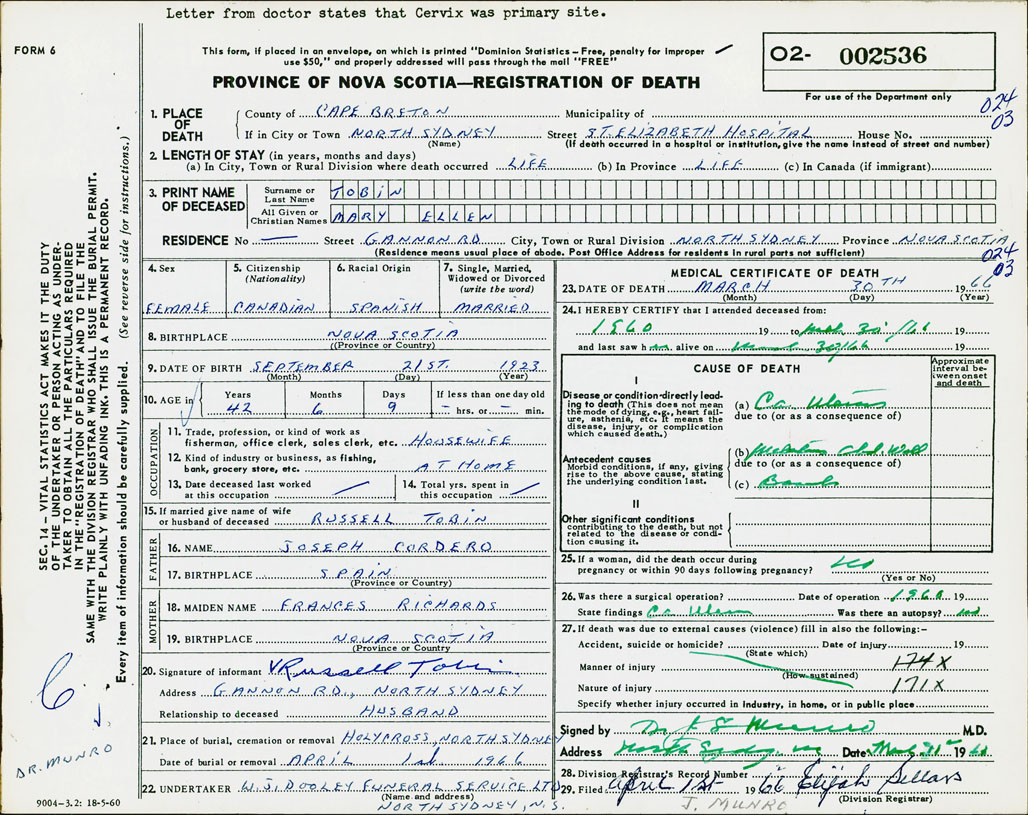 Letter from doctor states that Cervix was primary site.
FORM 6
This form, if placed in an envelope, on which is printed "Dominion Statistics – Free, penalty for improper
use $50," and properly addressed will pass through the mail "FREE"
O2- 002536
PROVINCE OF NOVA SCOTIA—REGISTRATION OF DEATH
For use of the Department only
024
03
1. PLACE OF DEATH
County of CAPE BRETON Municipality of
If in City or Town NORTH SYDNEY Street ST. ELIZABETH HOSPITAL House No.
(Name) (If death occurred in a hospital or institution, give the name instead of street and number)
2. LENGTH OF STAY (in years, months and days)
(a) In City, Town or Rural Division where death occurred LIFE (b) In Province LIFE (c) In Canada (if immigrant)
3. PRINT NAME OF DECEASED
Surname or Last Name TOBIN
All Given or Christian Names MARY ELLEN
RESIDENCE No — Street GANNON RD City, Town or Rural Division NORTH SYDNEY Province NOVA SCOTIA
(Residence means usual place of abode. Post Office Address for residents in rural parts not sufficient)
024
03
4. Sex
FEMALE
5. Citizenship (Nationality)
CANADIAN
6. Racial Origin
SPANISH
7. Single, Married, Widowed or Divorced (write the word)
MARRIED
8. BIRTHPLACE NOVA SCOTIA
(Province or Country)
9. DATE OF BIRTH SEPTEMBER 21ST. 1923
(Month) (Day) (Year)
10. AGE in Years Months Days If less than one day old
42 6 9 – hrs. or – min.
OCCUPATION
11. Trade, profession, or kind of work as
fisherman, office clerk, sales clerk, etc. HOUSEWIFE
12. Kind of industry or business, as fishing,
bank, grocery store, etc. AT HOME
13. Date deceased last worked at this occupation
14. Total yrs. spent in this occupation
15. If married give name of wife
or husband of deceased RUSSELL TOBIN
FATHER
16. NAME JOSEPH CORDERO
17. BIRTHPLACE SPAIN
(Province or Country)
MOTHER
18. MAIDEN NAME FRANCES RICHARDS
19. BIRTHPLACE NOVA SCOTIA
(Province or Country)
20. Signature of informant Russell Tobin
Address GANNON RD., NORTH SYDNEY
Relationship to deceased HUSBAND
21. Place of burial, cremation or removal HOLYCROSS, NORTH SYDNEY
Date of burial or removal APRIL 1st 1966
22. UNDERTAKER W. S. DOOLEY FUNERAL SERVICE LTD
(Name and address)
NORTH SYDNEY, N.S.
MEDICAL CERTIFICATE OF DEATH
23. DATE OF DEATH MARCH 30TH 1966
(Month) (Day) (Year)
24. I HEREBY CERTIFY that I attended deceased from:
1960 19 to 30/66 19
and last saw h alive on 30/66 19
CAUSE OF DEATH
Approximate interval between onset and death
I
Disease or condition directly leading to death (This does not mean the mode of dying, e.g., heart failure, asthenia, etc. It means the disease, injury, or complication which caused death.)
(a) Ca
due to (or as a consequence of)
Antecedent causes
Morbid conditions, if any, giving rise to the above cause, stating the underlying condition last.
(b)
due to (or as a consequence of)
(c)
II
Other significant conditions
contributing to the death, but not related to the disease or condition causing it.
25. If a woman, did the death occur during
pregnancy or within 90 days following pregnancy?
(Yes or No)
26. Was there a surgical operation? Date of operation 1960 19
State findings Ca Was there an autopsy?
27. If death was due to external causes (violence) fill in also the following:–
Accident, suicide or homicide? Date of injury 19
(State which)
Manner of injury 174X
(How sustained)
Nature of injury 171X
Specify whether injury occurred in industry, in home, or in public place
Signed by Dr Munro M.D.
Address North Date 19
28. Division Registrar's Record Number
29. Filed April 1st 1966 Elijah Sellars
(Division Registrar)
J. MUNRO
SEC. 14 – VITAL STATISTICS ACT MAKES IT THE DUTY
OF THE UNDERTAKER OR PERSON ACTING AS UNDER-
TAKER TO OBTAIN ALL THE PARTICULARS REQUIRED
IN THE "REGISTRATION OF DEATH" AND TO FILE THE
SAME WITH THE DIVISION REGISTRAR WHO SHALL ISSUE THE BURIAL PERMIT.
WRITE PLAINLY WITH UNFADING INK. THIS IS A PERMANENT RECORD.
Every item of information should be carefully supplied. (See reverse side for instructions.)
DR. MUNRO
9004–3.2: 18-5-60